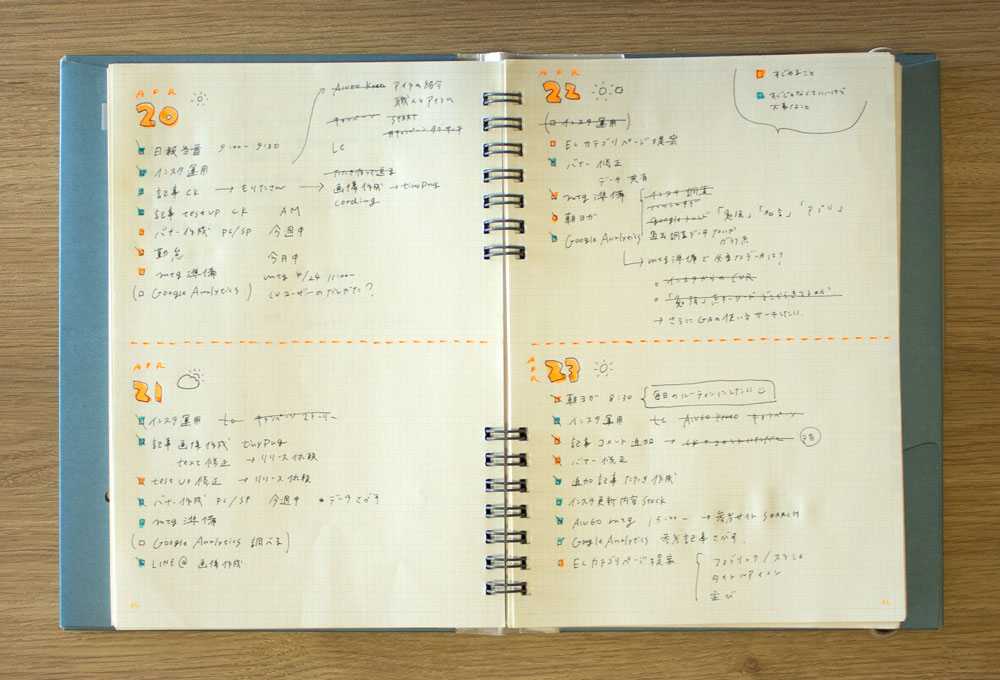 APR
20
日報当番 9:00 - 9:30
インスタ運用
記事 CK → もりたさん → 画像作成 → tinypng
cording
記事 test up CK AM
バナー作成 PC/SP 今週中
勤怠 今月中
mtg 準備 mtg 4/24 11:00-
(Google Analytics) CVユーザーの
アイテムの紹介
職人×アイテムの
START
LC
APR
21
インスタ運用 to キャンペーン ストーリー
記事 画像作成 tinypng
text 修正 → リリース依頼
test up 修正 → リリース依頼
バナー作成 PC/SP 今週中 ★データさがす
mtg 準備
(Google Analytics 調べる)
LINE@ 画像作成
45
APR
22
すごめなこと
大事なこと
(インスタ運用)
ECカテゴリページ提案
バナー修正
データ共有
mtg 準備 インスタ調査
朝ヨガ Google
Google Analytics 過去調査データ
→ mtg準備で必要なデータは?
インスタからのCVR
→ さらにGAの使い方サーチしたい。
APR
23
朝ヨガ 8:30 毎日のルーティンにしたい
インスタ運用 LC AIUEO キャンペーン
記事 コメント追加 → CK
バナー修正
追加記事たたき作成
インスタ更新内容 Stock
AIUEO mtg 15:00- → 参考サイト SEARCH
Google Analytics 参考記事さがす.
ECカテゴリページ提案 ファブリック/ステショ
タイトルアイコン
並び